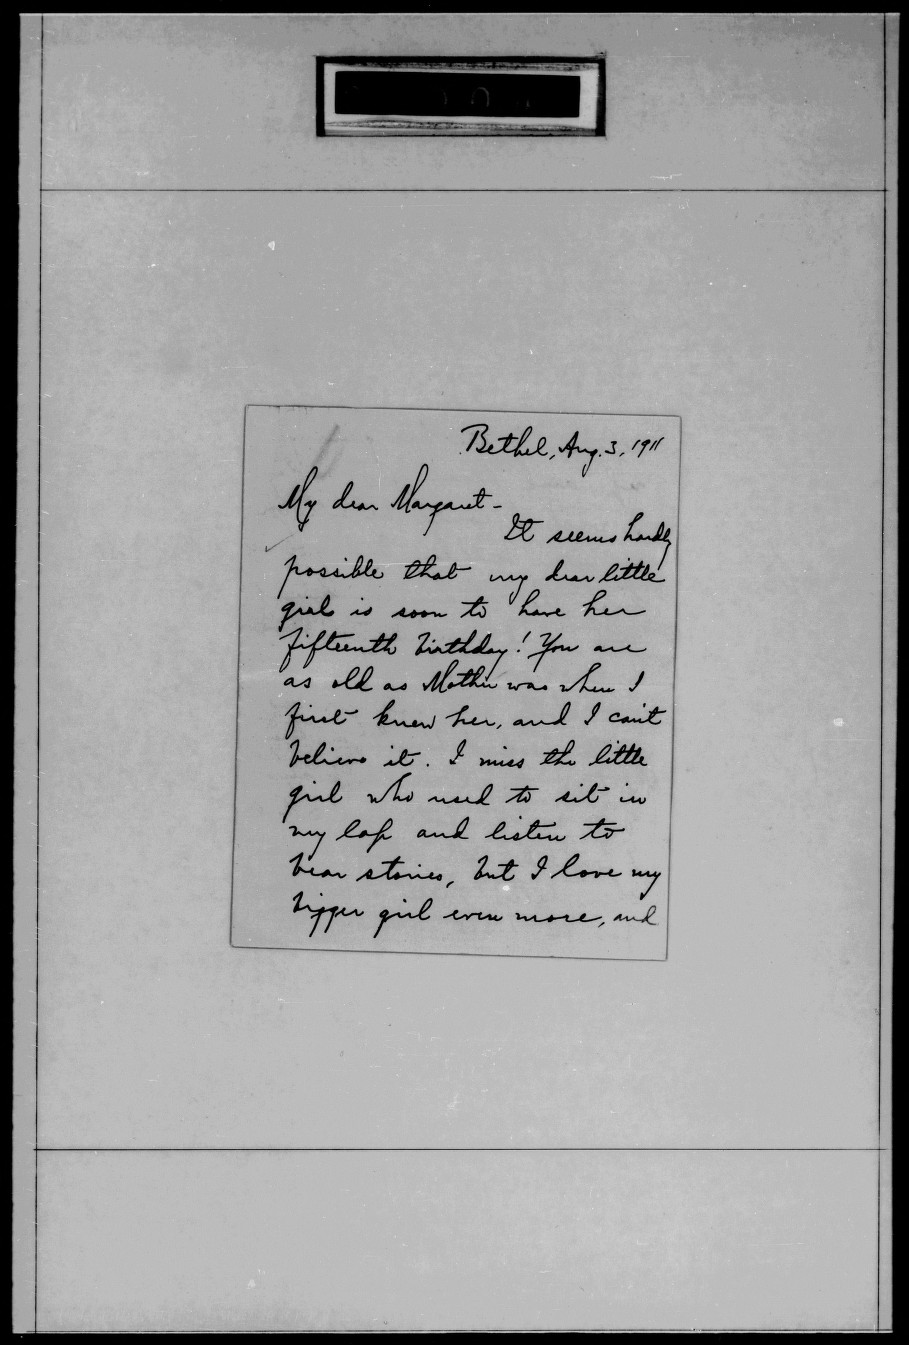 Bethel, Aug. 3, 1911
My dear Margaret -
It seems hardly
possible that my dear little
girl is soon to have her
fifteenth birthday! You are
as old as Mother was when I
first knew her, and I can't
believe it. I miss the little
girl who used to sit in
my lap and listen to
bear stories, but I love my
bigger girl even more, and